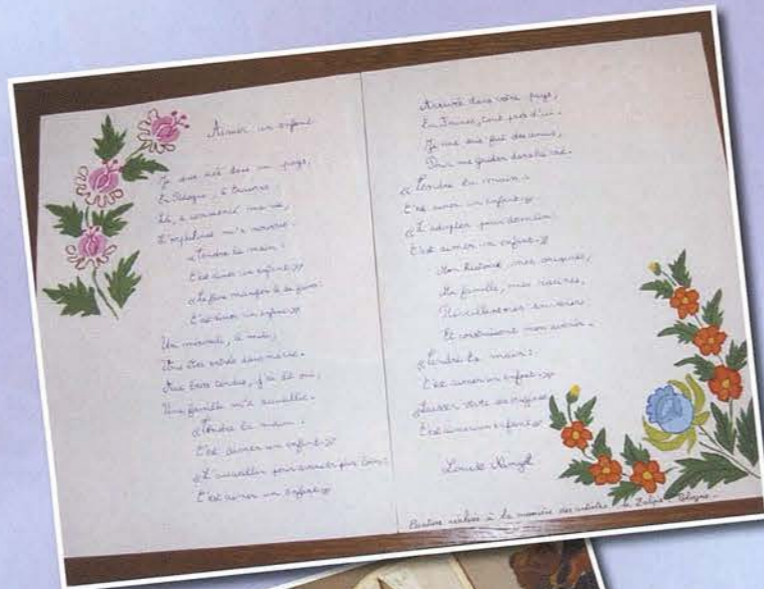 Aimer un enfant
Je suis né dans un pays,
En Pologne, à
Là, a commencé ma vie,
L'orphelinat m'a nourrie.
«Tendre la main:
C'est aimer un enfant.»
«Le faire manger à sa faim:
C'est aimer un enfant.»
Un mercredi, à midi,
Vous êtes entrés dans ma vie.
Aux bras tendus, j'ai dit oui,
Une famille m'a accueillie.
«Tendre la main:
C'est aimer un enfant.»
«L'accueillir pour
C'est aimer un enfant.»
Arrivée dans votre pays,
En France, tout près d'ici.
Je me suis fait des amis,
Pour me guider dans la vie.
«Tendre la main:
C'est aimer un enfant.»
«L'adopter pour demain:
C'est aimer un enfant.»
Mon histoire, mes origines,
Ma famille, mes racines,
mes souvenirs
Et construisent mon avenir.
«Tendre la main:
C'est aimer un enfant.»
«Laisser
C'est aimer un enfant.»
Peinture réalisée à la manière des artistes de Zalipie - Pologne -